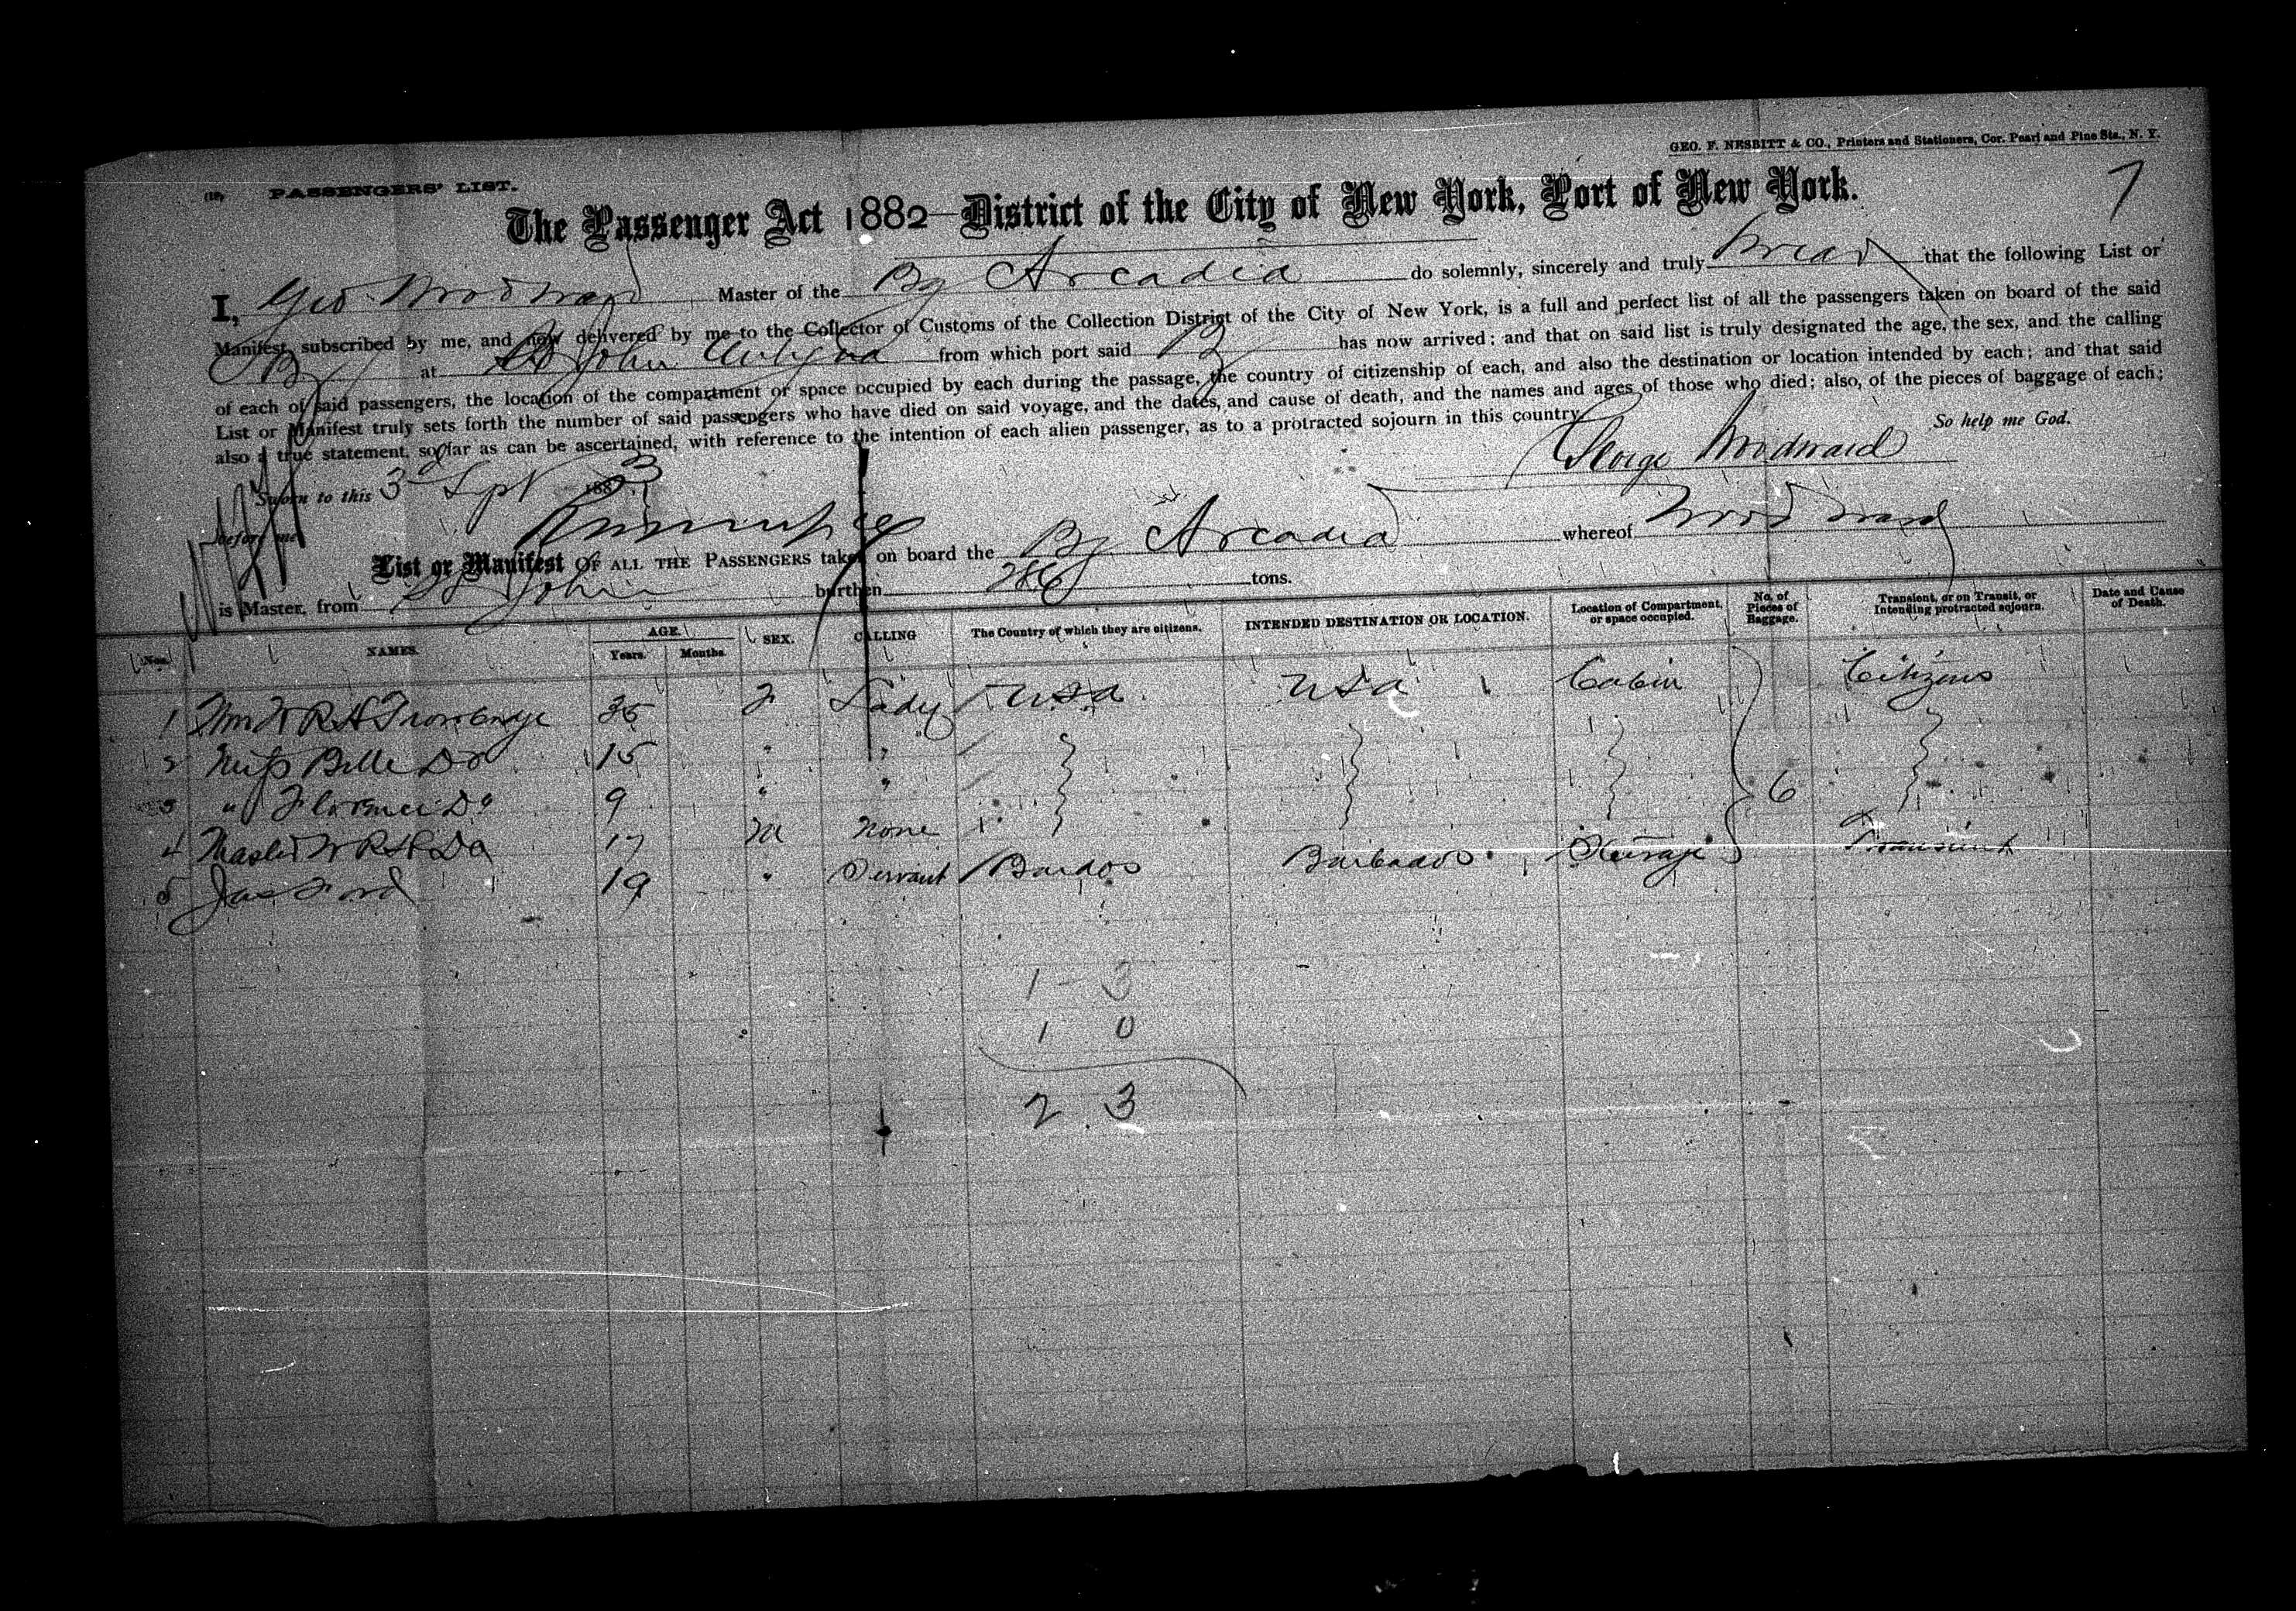 GEO. F. NESBITT & CO., Printers and Stationers, Cor. Pearl and Pine Sts., N. Y.
(18) PASSENGERS' LIST.
7
The Passenger Act 1882—District of the City of New York, Port of New York.
I, Geo Woodward Master of the Bg Arcadia do solemnly, sincerely and truly swear that the following List or
Manifest, subscribed by me, and now delivered by me to the Collector of Customs of the Collection District of the City of New York, is a full and perfect list of all the passengers taken on board of the said
Bg at St John Antigua from which port said Bg has now arrived; and that on said list is truly designated the age, the sex, and the calling
of each of said passengers, the location of the compartment or space occupied by each during the passage, the country of citizenship of each, and also the destination or location intended by each; and that said
List or Manifest truly sets forth the number of said passengers who have died on said voyage, and the dates, and cause of death, and the names and ages of those who died; also, of the pieces of baggage of each;
also a true statement, so far as can be ascertained, with reference to the intention of each alien passenger, as to a protracted sojourn in this country.
So help me God.
George Woodward
Sworn to this 3d Sept 1883
before me
List or Manifest OF ALL THE PASSENGERS taken on board the Bg Arcadia whereof Woodward
is Master, from St John burthen 286 tons.
Nos. NAMES. AGE. Years. Months. SEX. CALLING The Country of which they are citizens. INTENDED DESTINATION OR LOCATION. Location of Compartment, or space occupied. No. of Pieces of Baggage. Transient, or on Transit, or Intending protracted sojourn. Date and Cause of Death.
1 Mrs W R H Trowbridge 36 F Lady USA USA Cabin Citizens
2 Miss Belle Do 15 " "
3 " Florence Do 9 " " 6
4 Master W R H Do 17 M None
5 Jas Ford 19 " Servant Bardos Barbados Steerage Transient
1 3
1 0
2 3